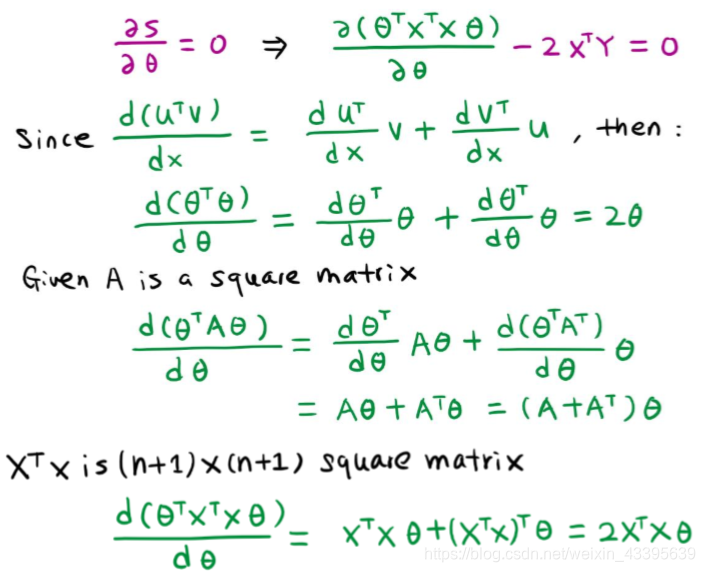 ∂S/∂θ = 0 ⇒ ∂(θᵀXᵀXθ)/∂θ - 2XᵀY = 0
Since d(uᵀv)/dx = duᵀ/dx v + dvᵀ/dx u , then :
d(θᵀθ)/dθ = dθᵀ/dθ θ + dθᵀ/dθ θ = 2θ
Given A is a square matrix
d(θᵀAθ)/dθ = dθᵀ/dθ Aθ + d(θᵀAᵀ)/dθ θ
= Aθ + Aᵀθ = (A+Aᵀ)θ
XᵀX is (n+1)x(n+1) square matrix
d(θᵀXᵀXθ)/dθ = XᵀXθ+(XᵀX)ᵀθ = 2XᵀXθ
https://blog.csdn.net/weixin_43395639